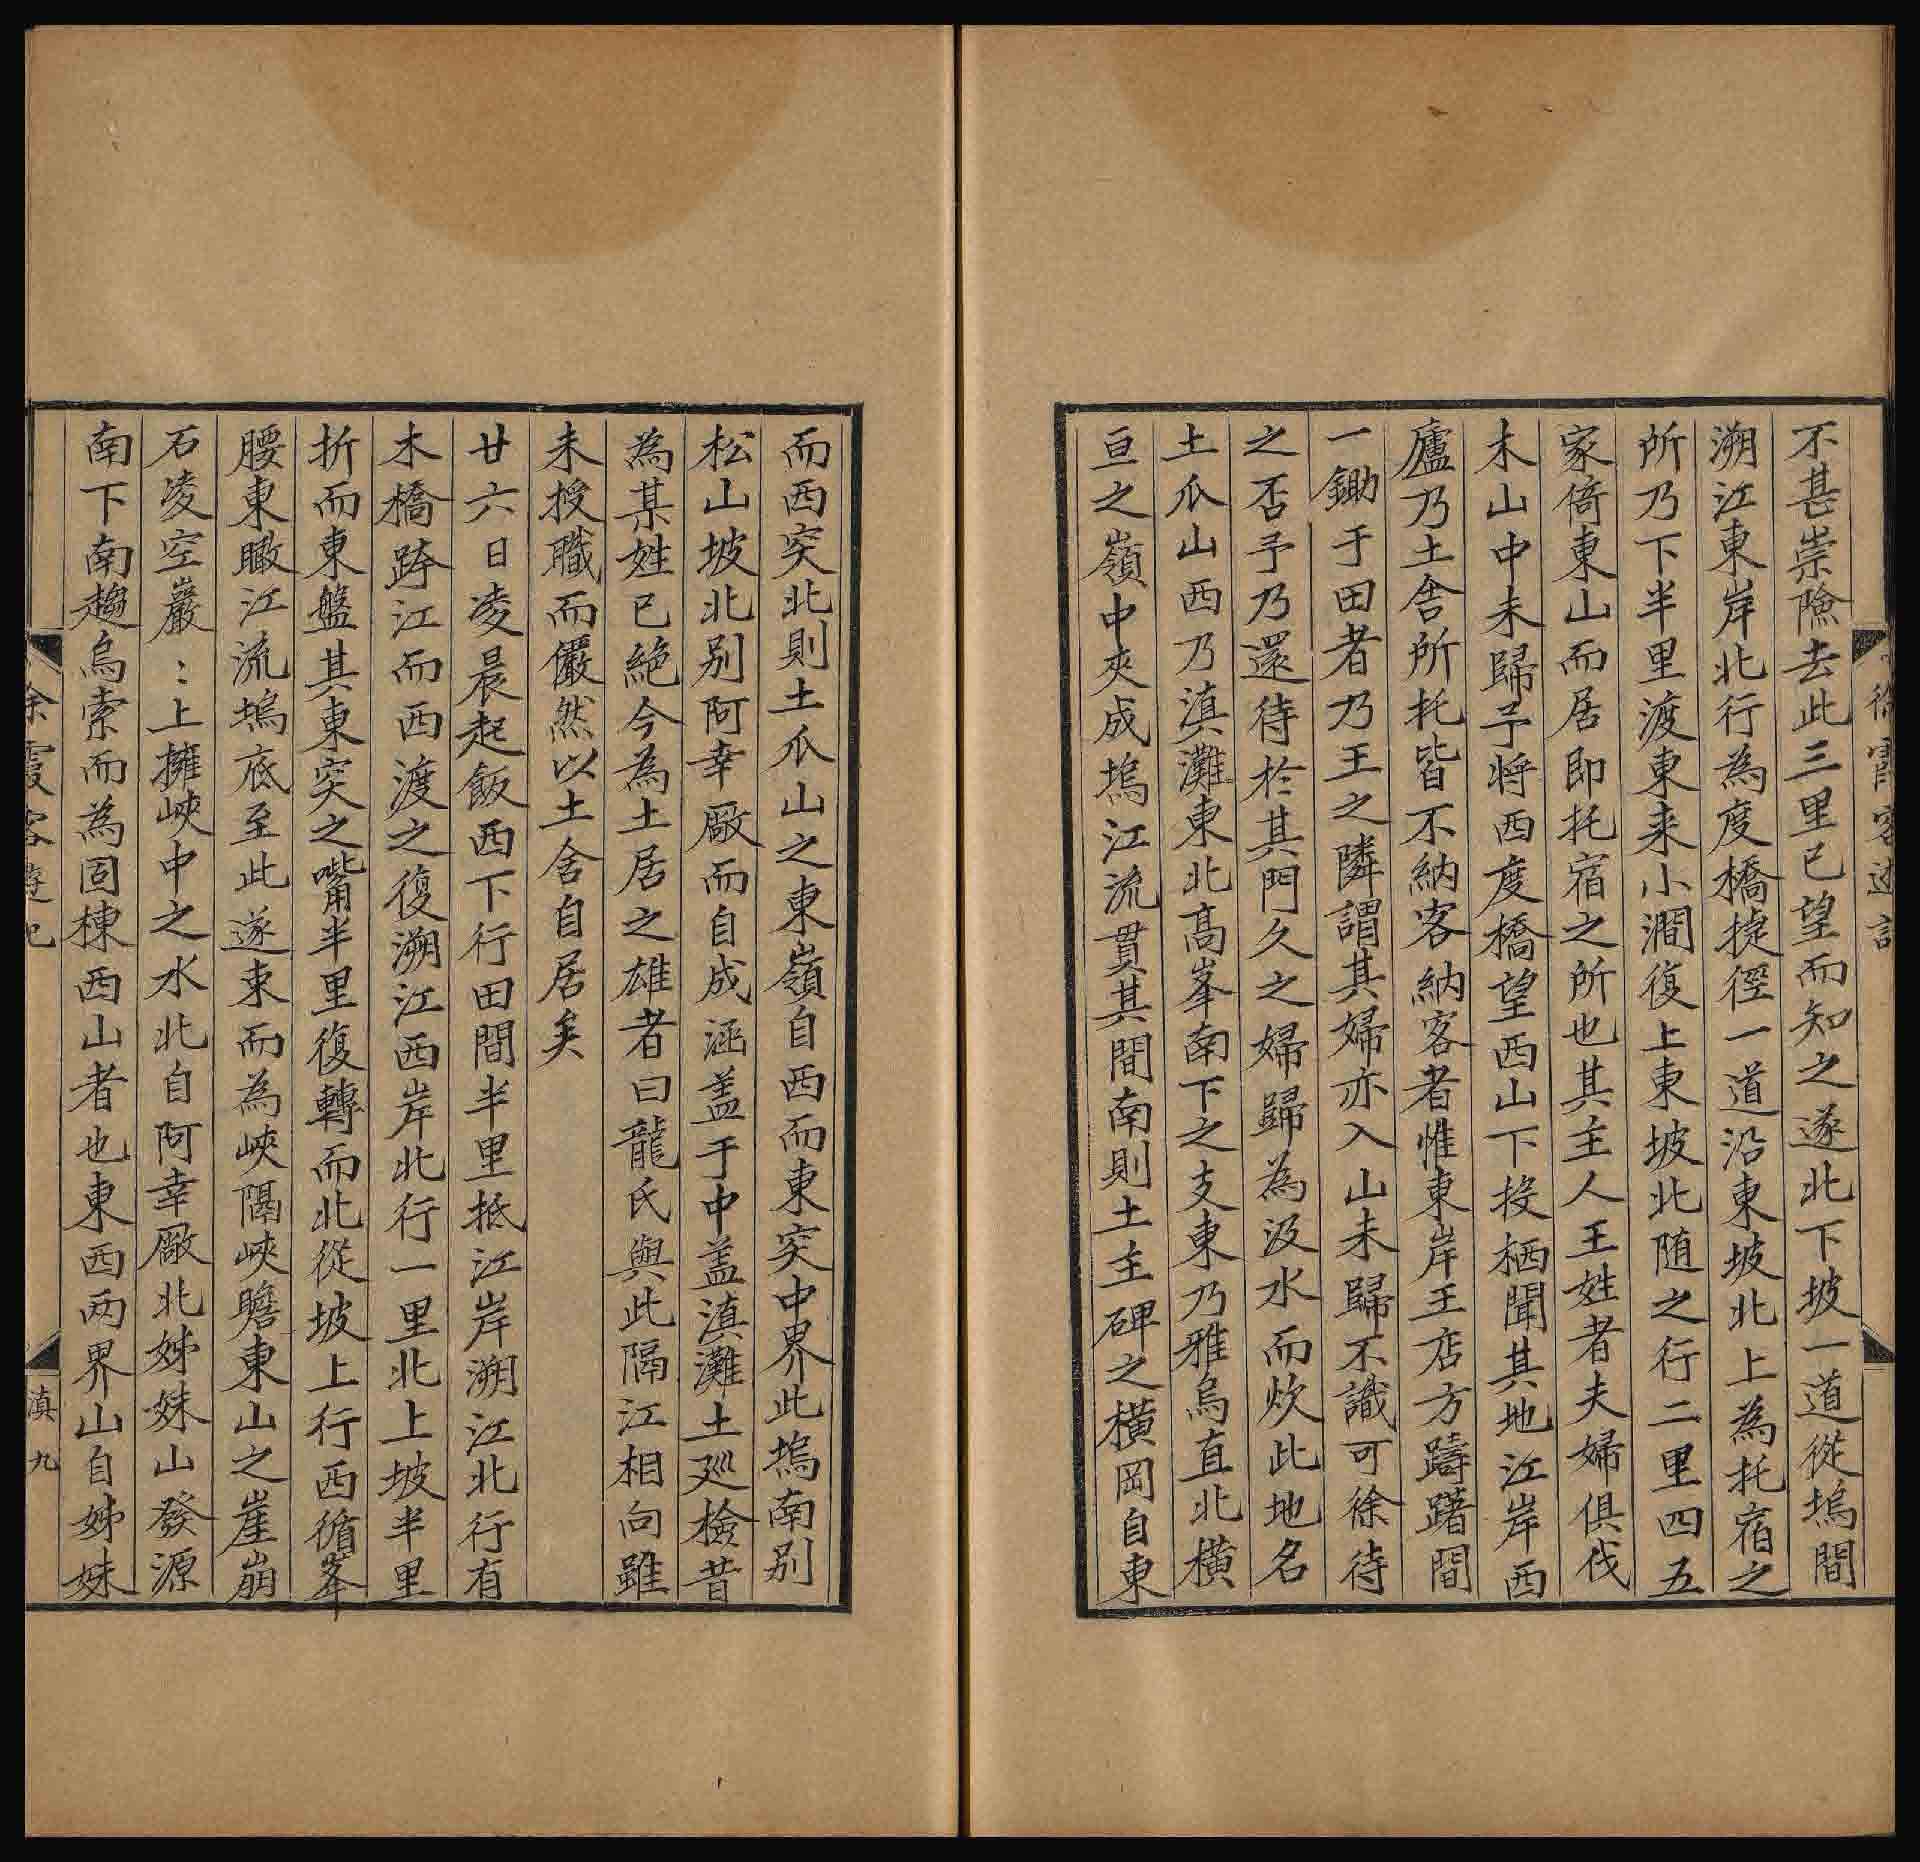 徐霞客遊記
不甚崇險去此三里已望而知之遂北下坡一道從塢間
溯江東岸北行為度橋捷徑一道沿東坡北上為托宿之
所乃下半里渡東来小澗復上東坡北随之行二里四五
家倚東山而居即托宿之所也其主人王姓者夫婦俱伐
木山中未歸予将西度橋望西山下投栖聞其地江岸西
廬乃土舍所托皆不納客納客者惟東岸王店方躊躇間
一鋤于田者乃王之隣謂其婦亦入山未歸不識可徐待
之否予乃還待於其門久之婦歸為汲水而炊此地名
土瓜山西乃滇灘東北高峯南下之支東乃雅烏直北橫
亘之嶺中夾成塢江流貫其間南則土主碑之橫岡自東
而西突北則土瓜山之東嶺自西而東突中界此塢南别
松山坡北别阿幸厰而自成涵盖于中盖滇灘土廵檢昔
為某姓已絶今為土居之雄者曰龍氏與此隔江相向雖
未授職而儼然以土舍自居矣
廿六日凌晨起飯西下行田間半里抵江岸溯江北行有
木橋跨江而西渡之復溯江西岸北行一里北上坡半里
折而東盤其東突之嘴半里復轉而北從坡上行西循峯
腰東瞰江流塢底至此遂束而為峽隔峽瞻東山之崖崩
石凌空巖〻上擁峽中之水北自阿幸厰北姊妹山發源
南下南趨烏索而為固棟西山者也東西两界山自姊妹
徐霞客遊記
滇九